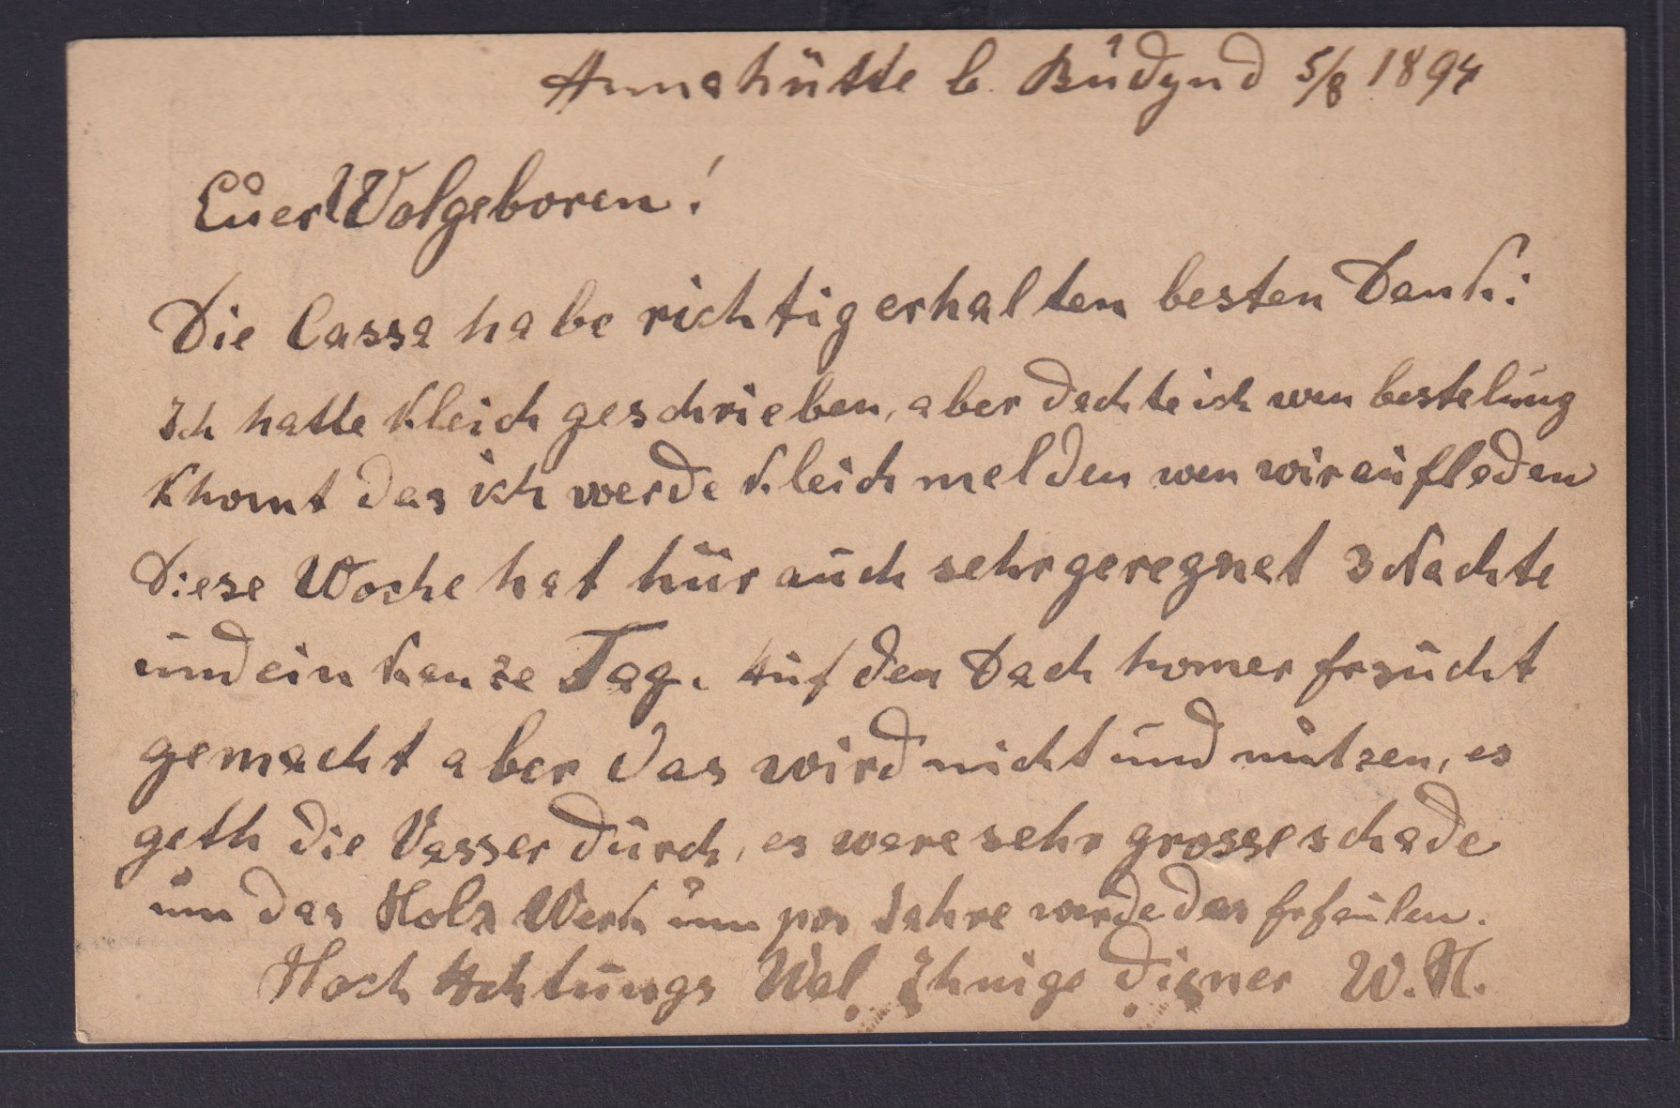 Annahütte b. Büdynd 5/8 1894
Euer Wolgeboren!
Die Cassa habe richtig erhalten besten Dank:
Ich hatte kleich geschrieben, aber dachte ich wen bestelung
khomt das ich werde kleich melden wen wir aufladen
Diese Woche hat hür auch sehr geregnet 3 Nachte
und ein kanze Tag. Auf den Dach homer frsucht
gemacht aber das wird nicht und nutzen, es
geth die Vasser durch, es were sehr grosse schade
um das Holz Werk um par Jahre werde das frfaulen.
Hoch Achtungs Wol Ihnige diener W. H.